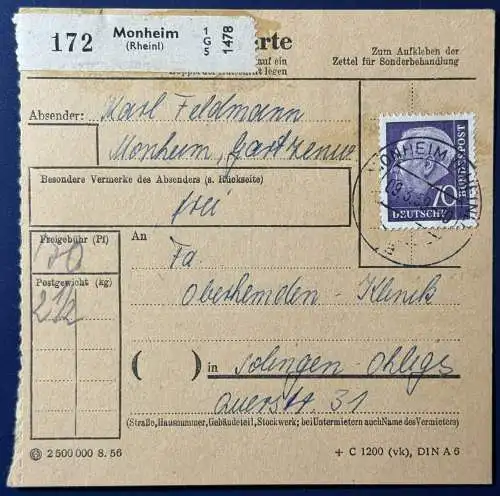 172
Monheim
(Rheinl)
1
G
5
1478
rte
auf ein
Doppel der Aufschrift legen
Zum Aufkleben der
Zettel für Sonderbehandlung
Absender: Karl Feldmann
Monheim,
Besondere Vermerke des Absenders (s. Rückseite)
frei
70
BUNDESPOST
DEUTSCHE
MONHEIM
Freigebühr (Pf)
70
Postgewicht (kg)
2 1/2
An
Fa.
Oberhemden - Klinik
( ) in Solingen-Ohligs
Querstr. 31
(Straße, Hausnummer, Gebäudeteil, Stockwerk; bei Untermietern auch Name des Vermieters)
2 500 000 8. 56
+ C 1200 (vk), DIN A 6